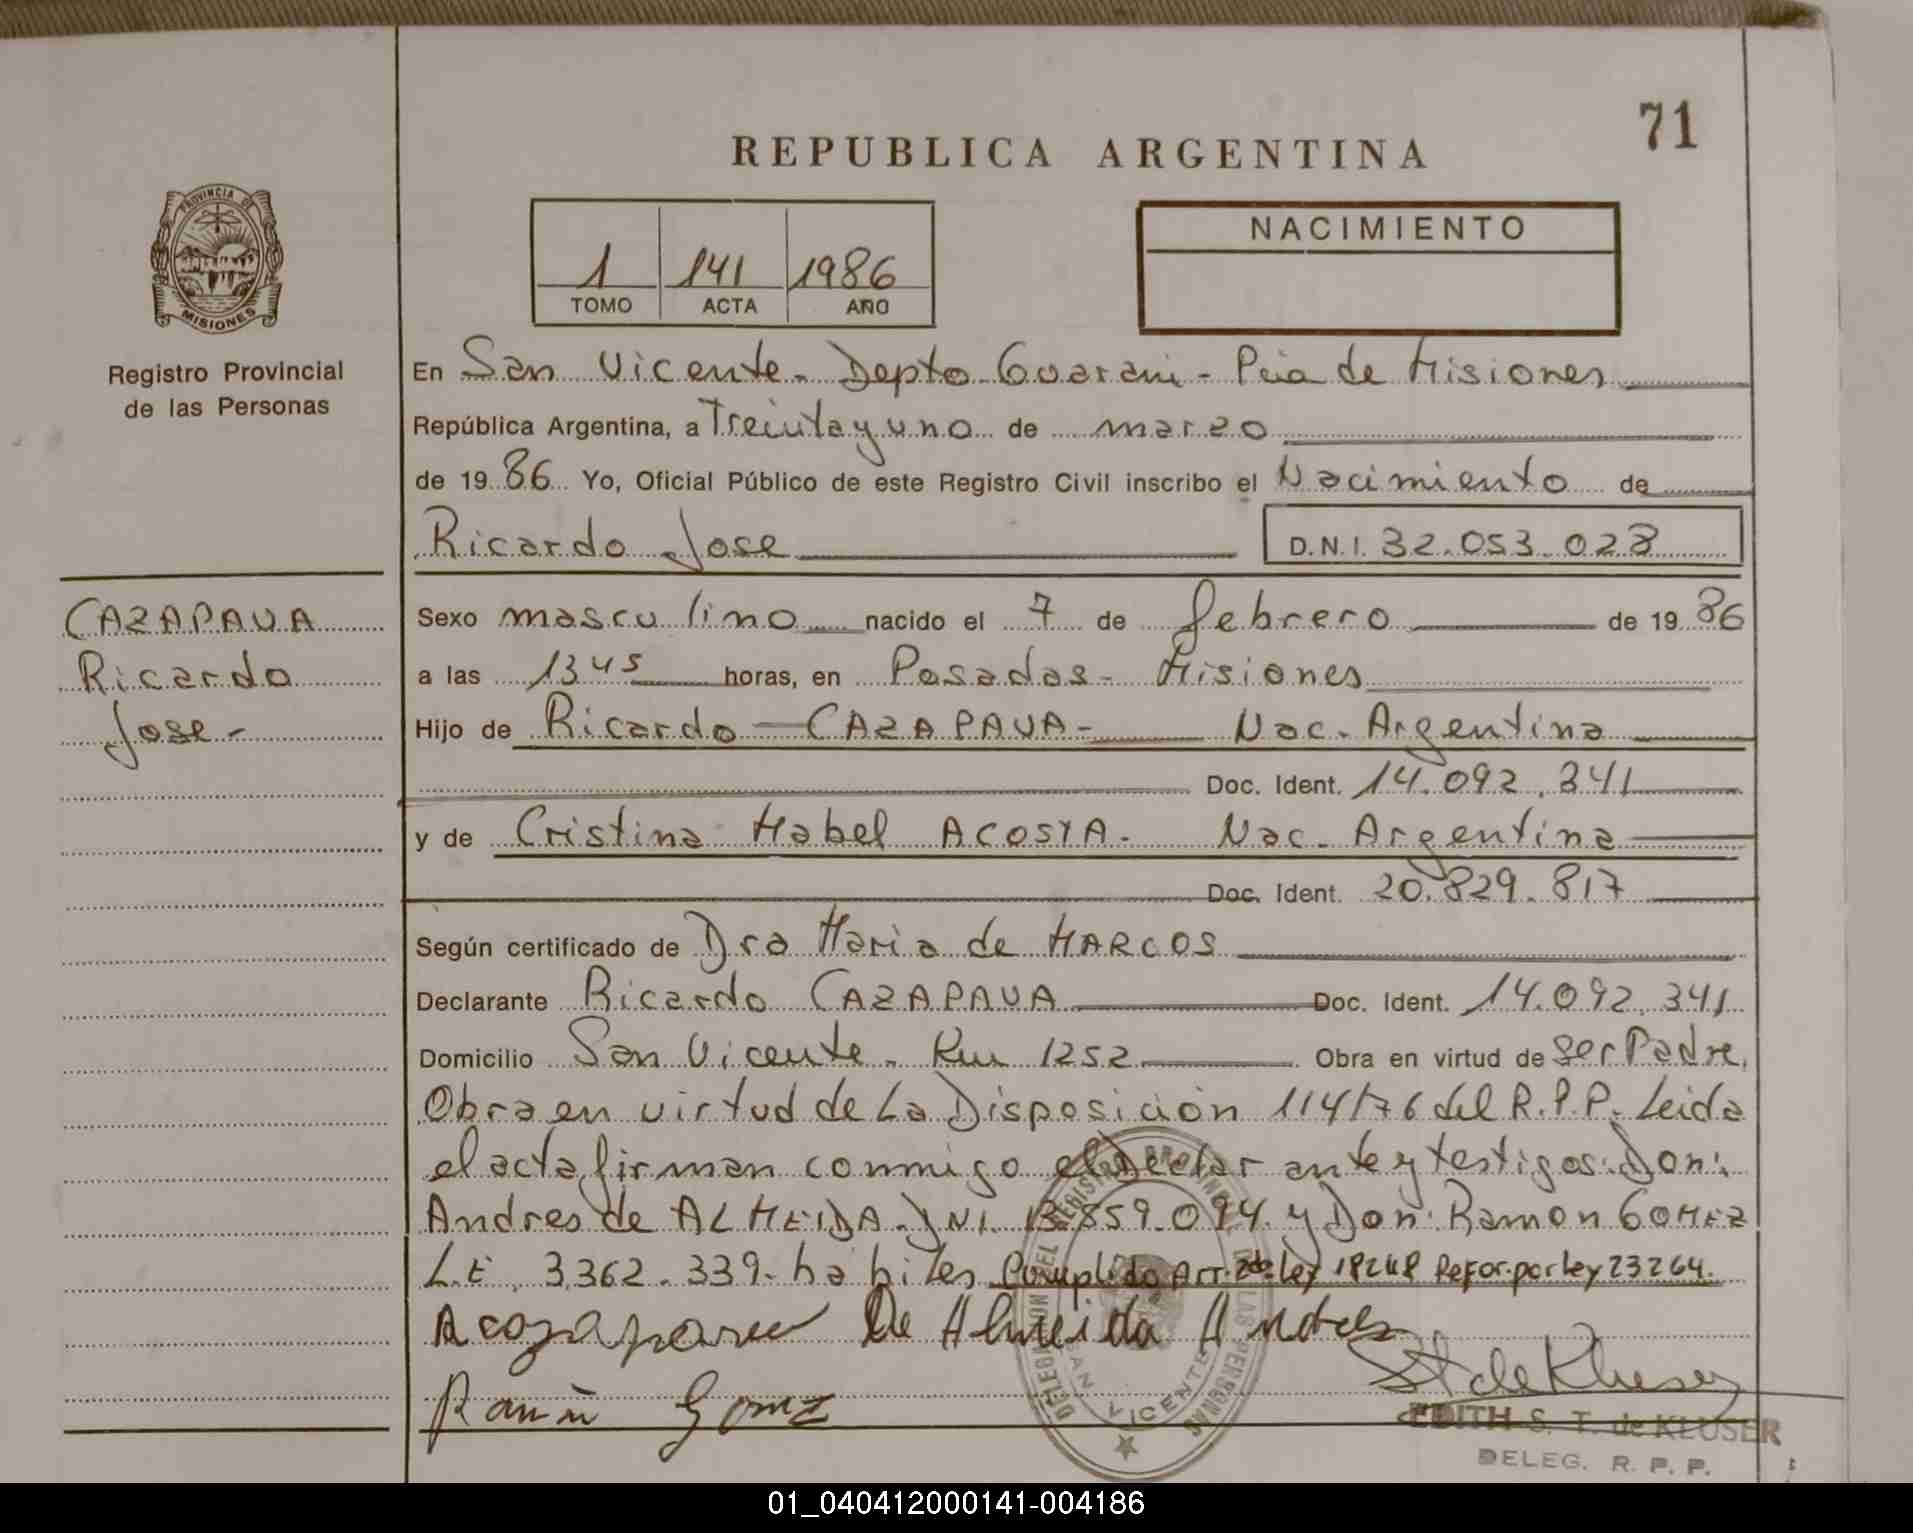 71
REPUBLICA ARGENTINA
PROVINCIA DE
MISIONES
Registro Provincial
de las Personas
1 141 1986
TOMO ACTA AÑO
NACIMIENTO
En San Vicente - Depto Guarani - Pcia de Misiones
República Argentina, a Treinta y uno de marzo
de 19 86 Yo, Oficial Público de este Registro Civil inscribo el Nacimiento de
Ricardo Jose D.N.I. 32.053.028
CAZAPAVA
Ricardo
Jose -
Sexo masculino nacido el 7 de febrero de 19 86
a las 13 45 horas, en Posadas - Misiones
Hijo de Ricardo CAZAPAVA - Nac. Argentina
Doc. Ident. 14.092.341
y de Cristina Mabel ACOSTA - Nac. Argentina
Doc. Ident. 20.829.817
Según certificado de Dra Maria de MARCOS
Declarante Ricardo CAZAPAVA Doc. Ident. 14.092.341
Domicilio San Vicente - Km 1252 Obra en virtud de ser Padre,
Obra en virtud de La Disposición 114/76 del R.P.P. Leida
el acta firman conmigo el Declarante y testigos: Don:
Andres de ALMEIDA DNI. 13.859.094 y Don: Ramon GOMEZ
L.E. 3.362.339 - habiles Cumplido Art. 2do Ley 18248 Refor. por ley 23264.
De Almeida Andres
Ramón Gomez
DELEGACION DEL REGISTRO PROVINCIAL DE LAS PERSONAS
SAN VICENTE
St de Kluser
EDITH S. T. de KLUSER
DELEG. R. P. P.
01_040412000141-004186